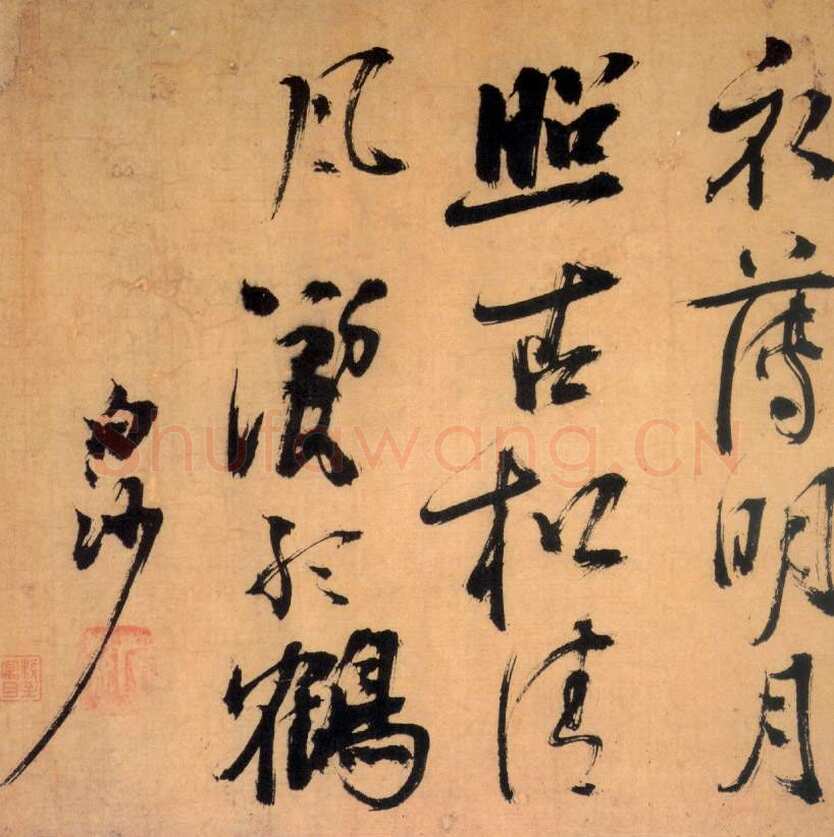 薄明月
照古松清
風孤鶴
白沙
Shufawang.CN